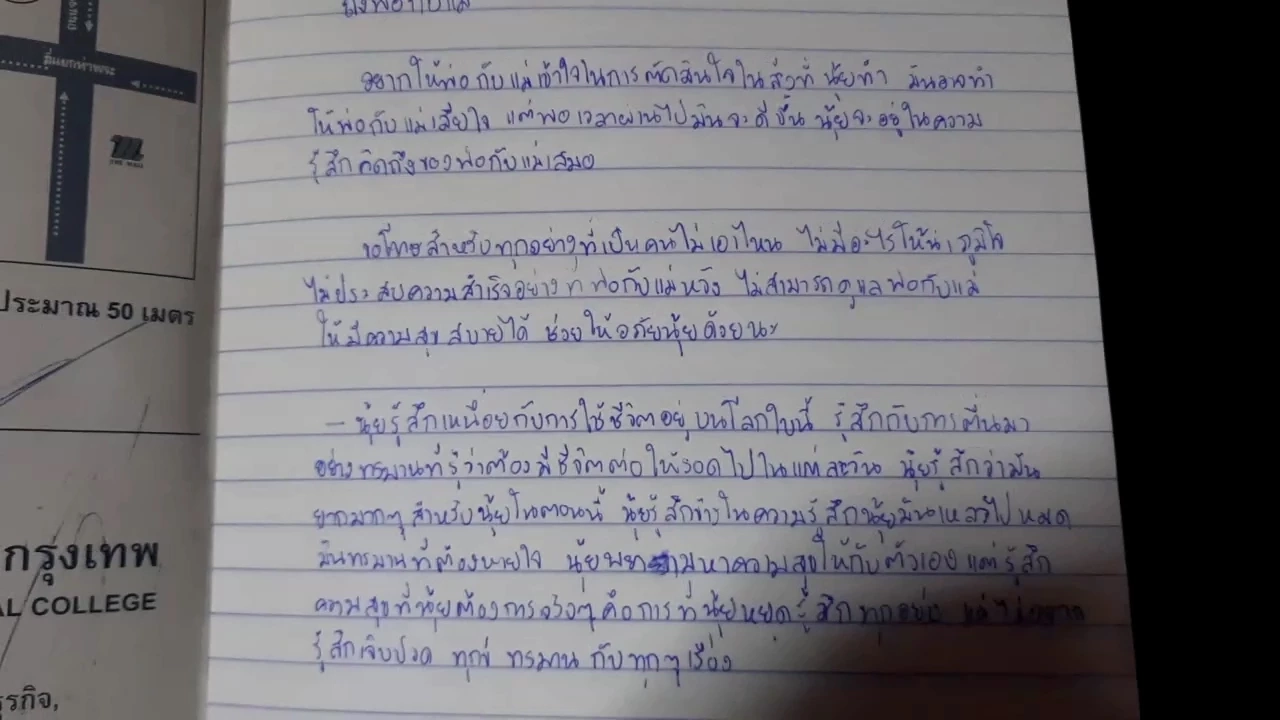 ถึงพ่อกับแม่
อยากให้พ่อกับแม่เข้าใจในการตัดสินใจในสิ่งที่นุ้ยทำ มันอาจทำ
ให้พ่อกับแม่เสียใจ แต่พอเวลาผ่านไปมันจะดีขึ้น นุ้ยจะอยู่ในความ
รู้สึกคิดถึงของพ่อกับแม่เสมอ
ขอโทษสำหรับทุกอย่างที่เป็นคนไม่เอาไหน ไม่มีอะไรให้น่าภูมิใจ
ไม่ประสบความสำเร็จอย่างที่พ่อกับแม่หวัง ไม่สามารถดูแลพ่อกับแม่
ให้มีความสุขสบายได้ ช่วยให้อภัยนุ้ยด้วยนะ
- นุ้ยรู้สึกเหนื่อยกับการใช้ชีวิตอยู่บนโลกใบนี้ รู้สึกกับการตื่นมา
อย่างทรมานที่รู้ว่าต้องมีชีวิตต่อให้รอดไปในแต่ละวัน นุ้ยรู้สึกว่ามัน
ยากมากๆ สำหรับนุ้ยในตอนนี้ นุ้ยรู้สึกข้างในความรู้สึกนุ้ยมันเหลวไปหมด
มันทรมานที่ต้องหายใจ นุ้ยพยายามหาความสุขให้กับตัวเองแต่รู้สึก
ความสุขที่นุ้ยต้องการจริงๆ คือการที่นุ้ยหยุดรู้สึกทุกอย่าง
รู้สึกเจ็บปวด ทุกข์ ทรมาน กับทุกๆ เรื่อง
สี่แยกท่าพระ
THE MALL
ประมาณ 50 เมตร
กรุงเทพ
AL COLLEGE
ธุรกิจ,